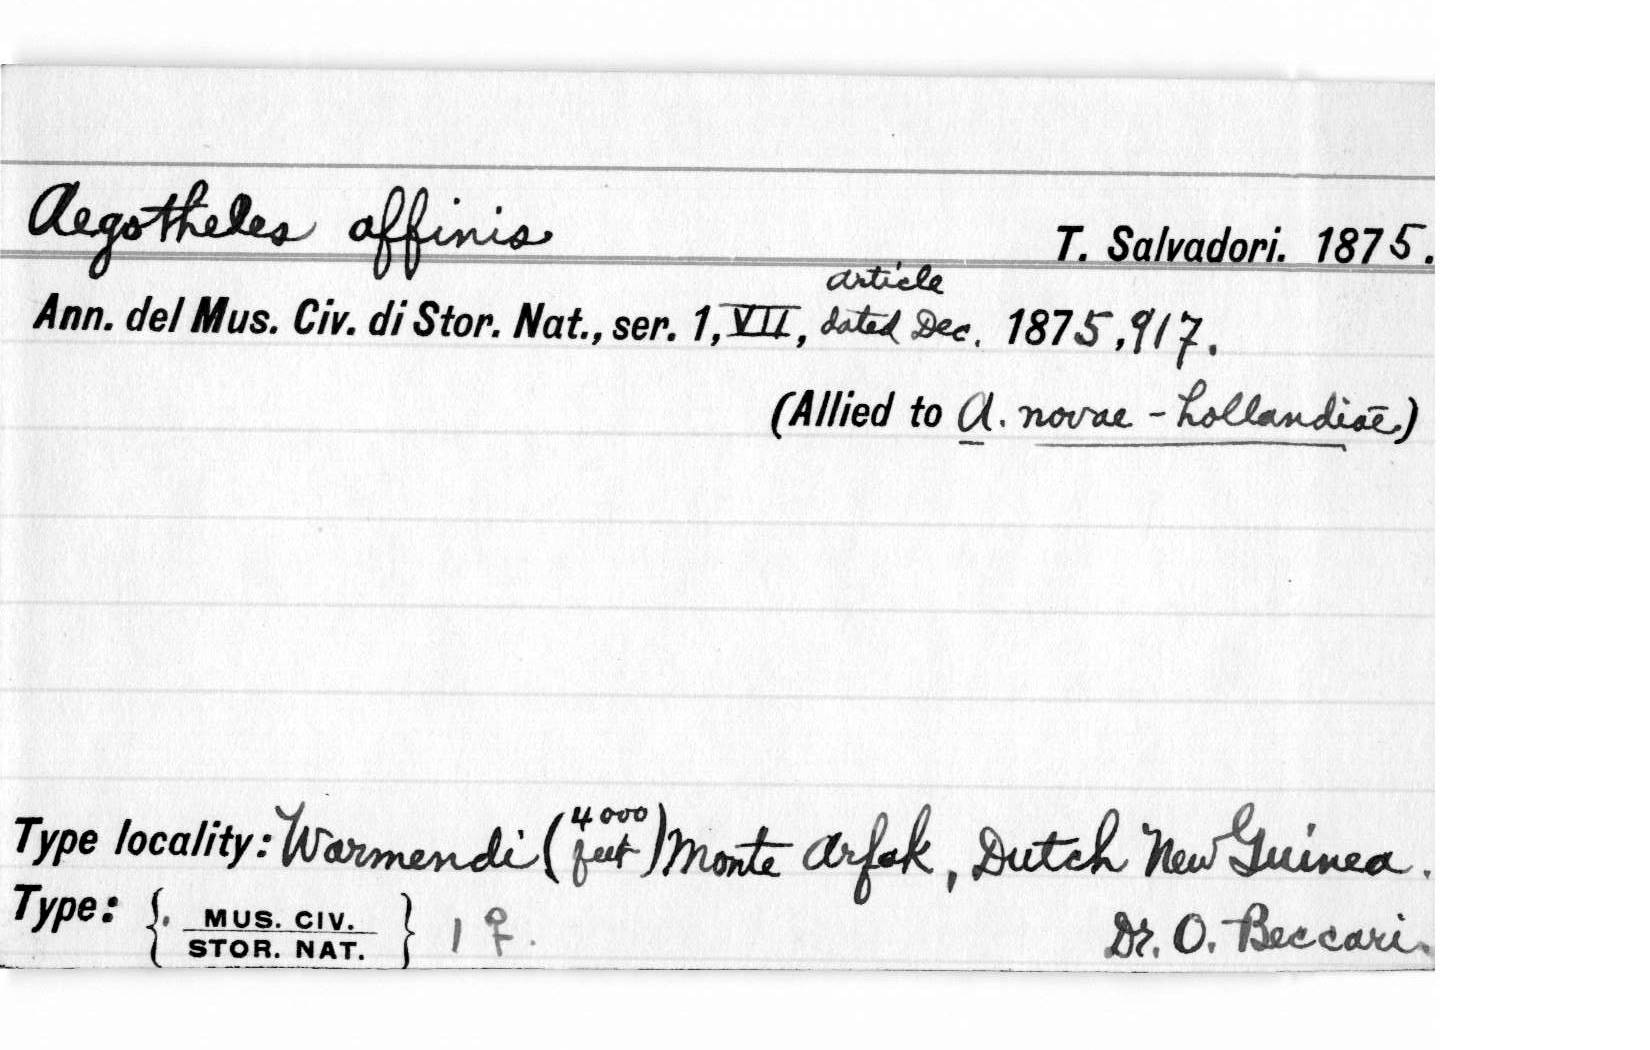 Aegotheles affinis T. Salvadori. 1875.
article
Ann. del Mus. Civ. di Stor. Nat., ser. 1, VII, dated Dec. 1875, 917.
(Allied to A. novae-hollandiae.)
Type locality: Warmendi (4000 feet) Monte Arfak, Dutch New Guinea.
Type: { MUS. CIV. STOR. NAT. } 1 ♀. Dr. O. Beccari.